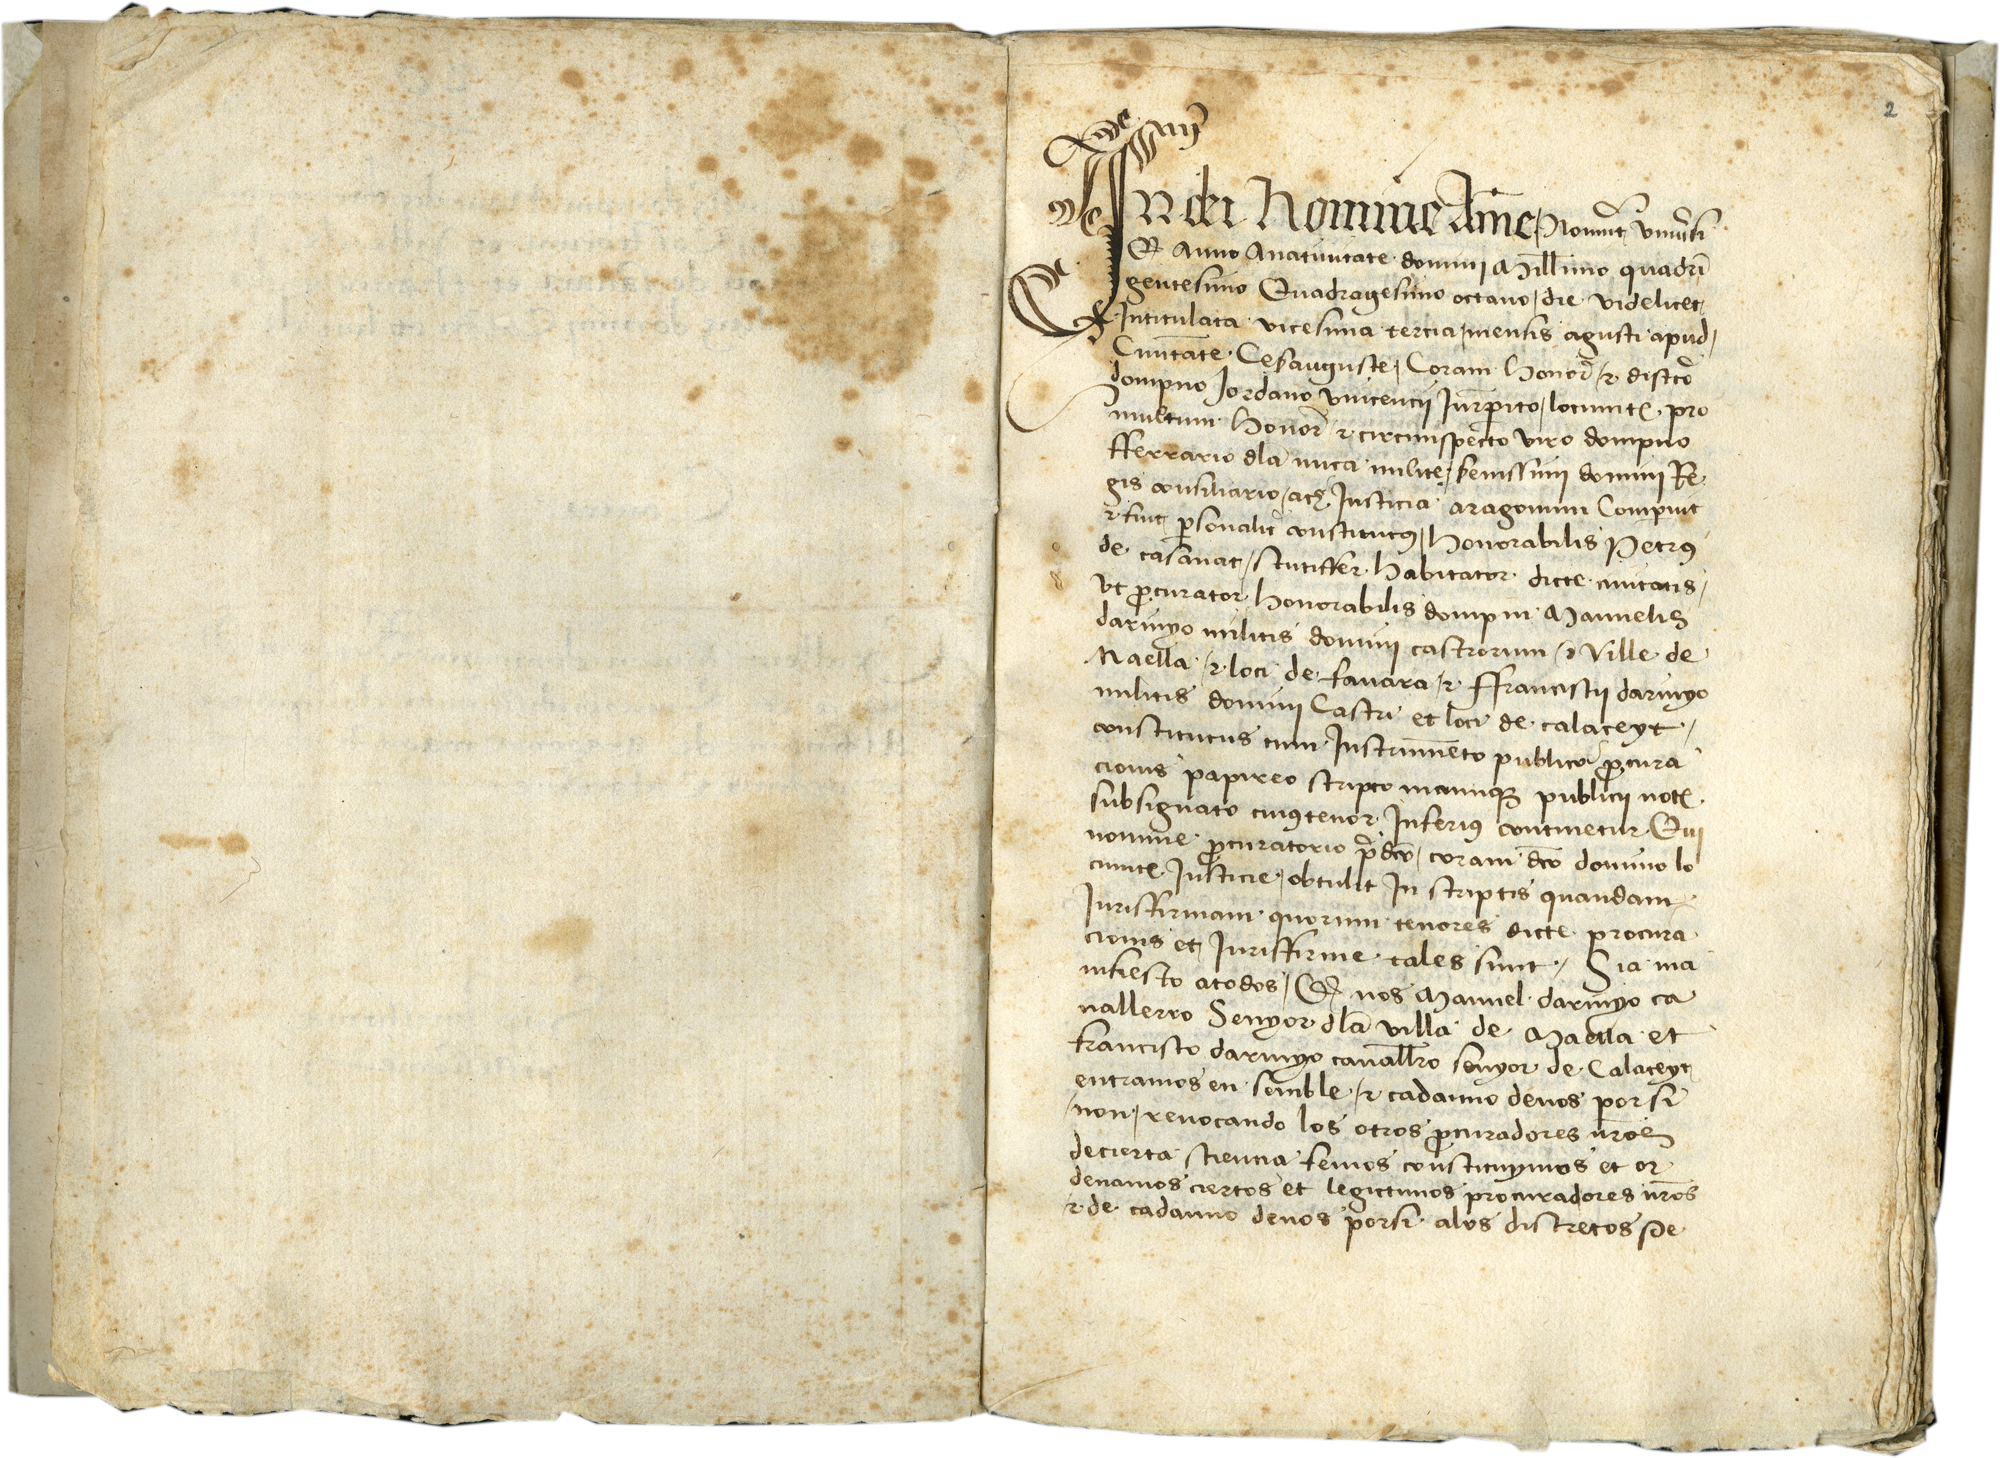 2
In dei Nomine Amē Nouĩt vniũsi
Qd Anno Anatiuitate domini Millimo quadrĩ
gentesimo Quadragesimo octauo / die videlicet
Intitulata vicesima tercia / mensis agusti apud /
Ciuitate Cesauguste / Coram honor / τ discto
dompno Jordano vincencij Jurꝑito / locumt pro
multum honor τ circumspecto viro dompno
fferrario dla nuca milite / serenissimi domini Re
gis consiliario / ac Justicia aragonum Comparuit
τ fuit ꝑsonalit constitutꝯ / honorabilis Petrꝯ
de casanat / scutiffer habitator dicte ciuitatis /
vt ꝓcurator honorabilis dompni Manuelis
darinyo militis domini castrorum / τ ville de
Maella / τ loci de fauara / τ ffranciscij darinyo
militis domini Castri et loci de calaceyt /
constitutus cum Instrumēto publico ꝓcura
cionis papireo scripto manuqꝫ publicij not
subsignato cuiꝯ tenor Inferiꝯ continetur Qui
nomine ꝓcuratorio p̄dco / coram dco domino lo
cumt Justicie / obtulit In scriptis quandam
Jurisfirmam quorum tenores dicte procura
cionis et Jurisfirme tales sunt / Sia ma
nifiesto atodos / Qd nos Manuel darinyo ca
uallerro Senyor dla villa de Maella et
francisco darinyo cauallro senyor de Calaceyt
entramos en semble / τ cadauno denos por si
non / reuocando los otros ꝓcuradores nr̄os
decierta sciencia femos constituymos et or
denamos ciertos et legittimos procuradores nr̄os
τ de cadauno denos porsi alos discretos Pe